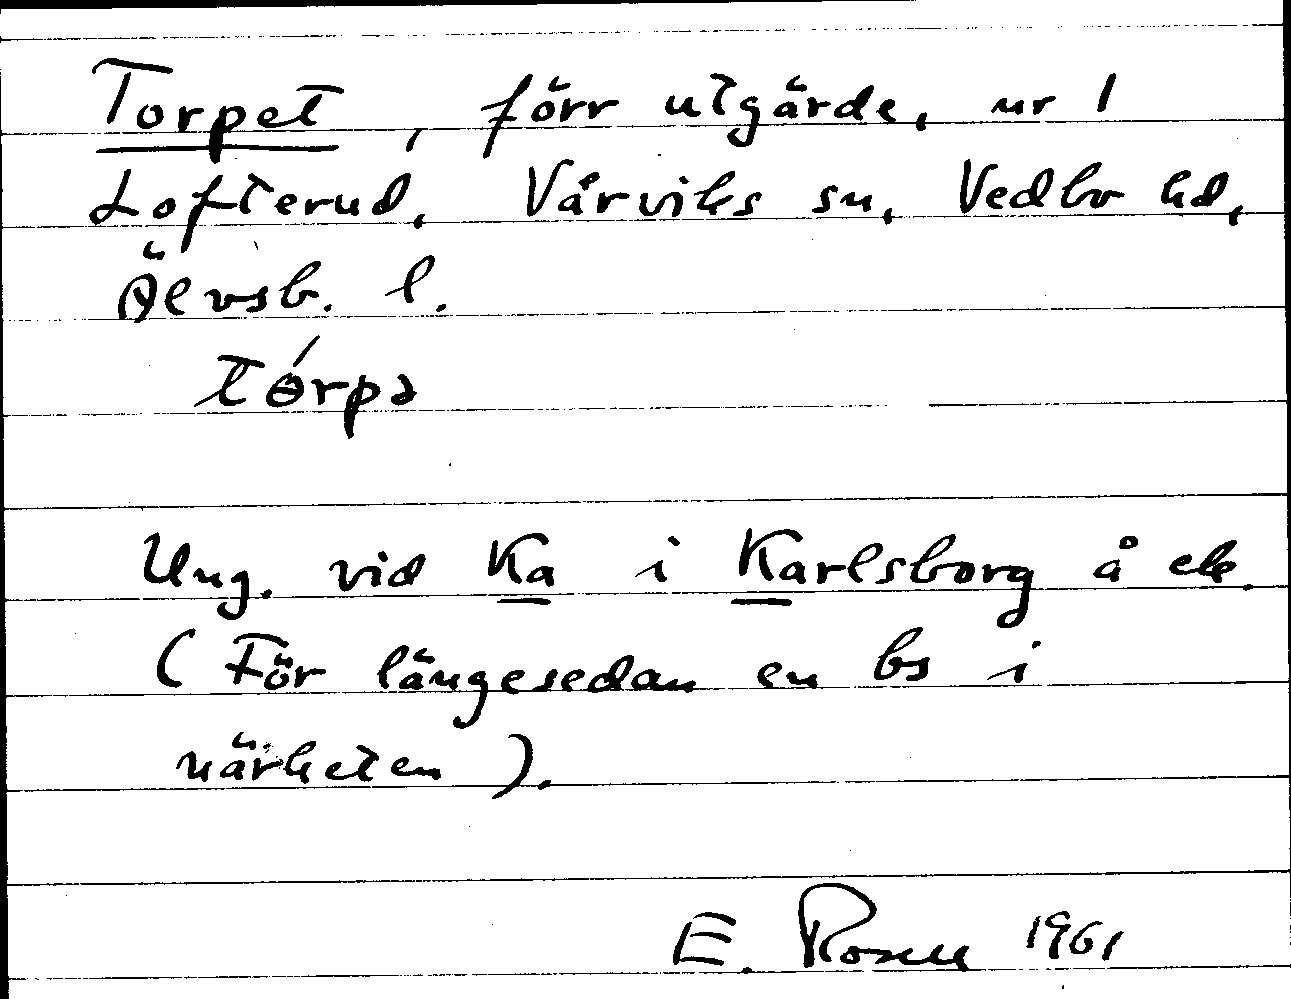 Torpet, förr utgärde, nr 1
Lofterud, Vårviks sn, Vedbo hd,
Älvsb. l.
tɵ́rpə
Ung. vid Ka i Karlsborg å ek.
(För längesedan en bs i
närheten).
E. Rosell 1961